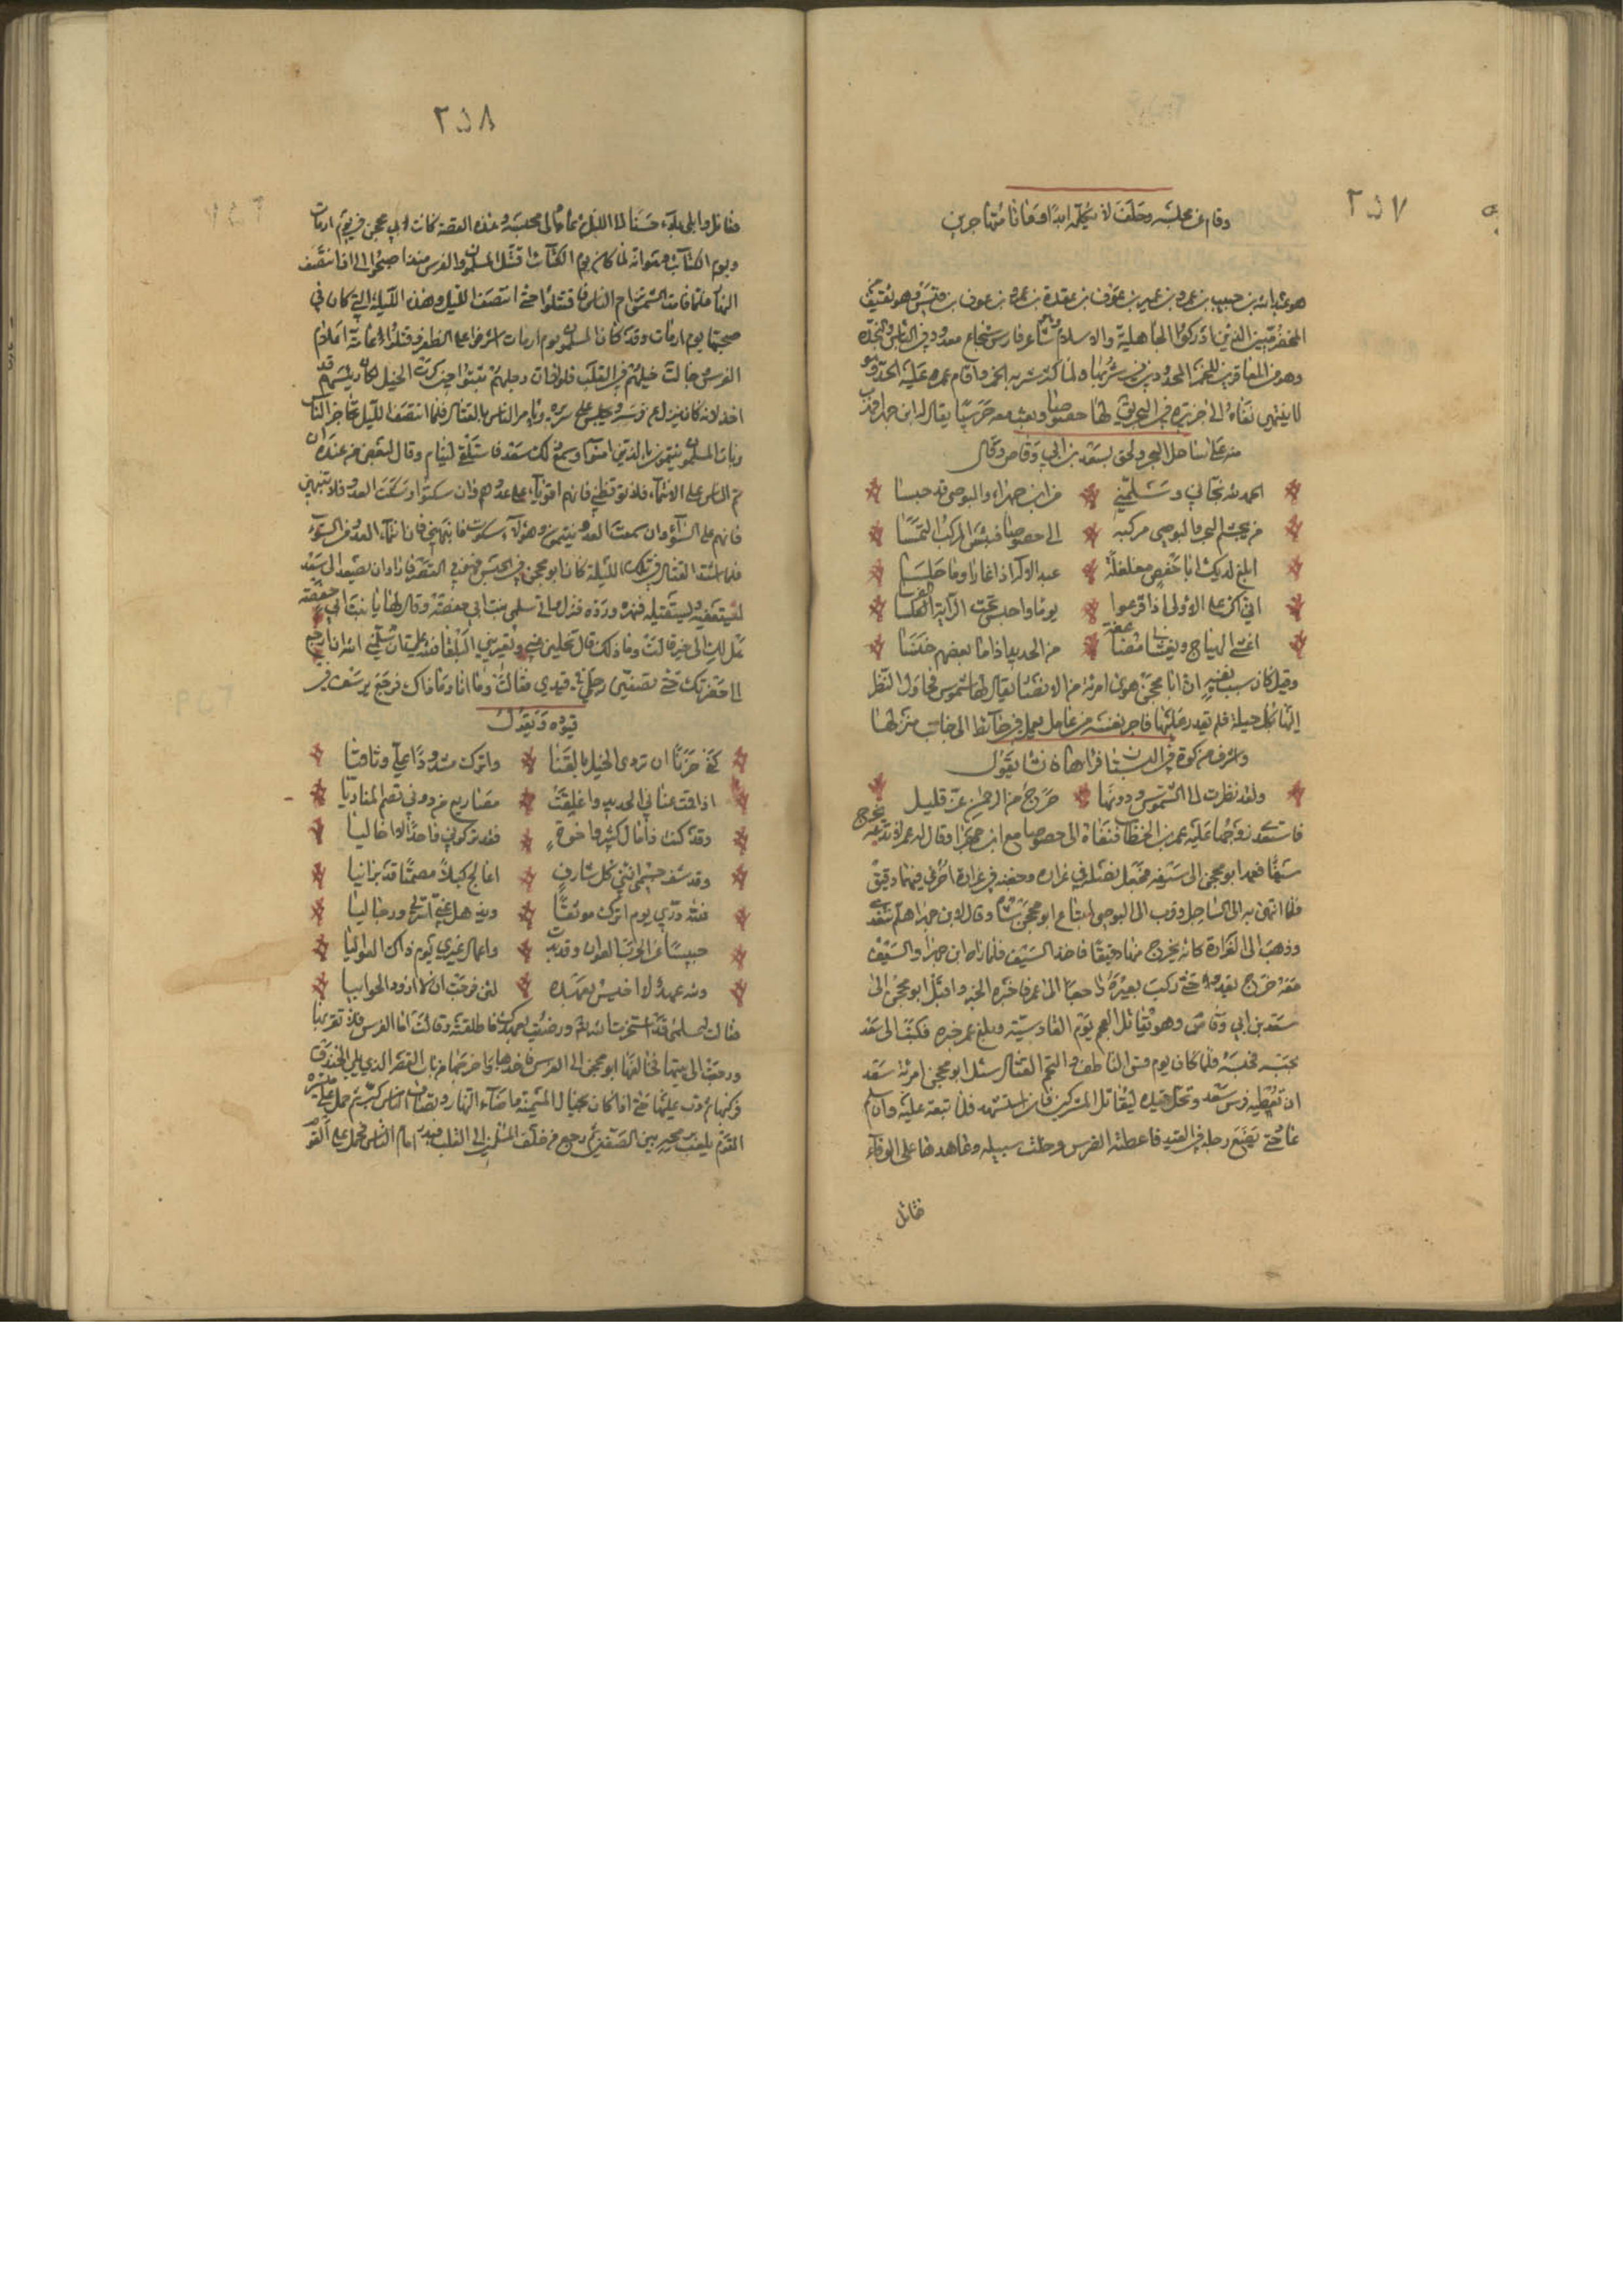 ٢٥٧
وقام عن مجلسه وحلف لا يكلمه ابدا وماتا متهاجرين
هو عبد الله بن حبيب بن عمرو بن عمير بن عوف بن عقدة بن غيرة بن عوف بن قيس وهو ثقيف
المخضرمين الذين ادركوا الجاهلية والاسلام شاعر فارس شجاع معدود في الناس والنجدة
وهو من المعاقرين للخمر المحدودين في شربها ولما كثر شربه الخمر واقام عمر عليه الحد وهو
لا ينتهي نفاه الى جزيرة في البحر يقال لها حضوضا وبعث معه حرسيا يقال له ابن جهرا فهرب
منه على ساحل البحر ولحق بسعد بن ابي وقاص وقال
الحمد لله نجاني وسلمني من ابن جهراء والبوصي قد حبسا
من يجشم البحر والبوصي مركبه الى حضوضا فبئس المركب التمسا
ابلغ لديك ابا حفص مغلغلة عبد الاله اذا غارا وما جلسا
اني اكر على الاولى اذا فزعوا يوما واحبس تحت الراية الفرسا
اغشى الهياج وتغشاني مضاعفة من الحديد اذا ما بعضهم خنسا
وقيل كان سبب نفيه ان ابا محجن هوى امرئة من الانصار يقال لها شموس فحاول النظر
اليها بكل حيلة فلم يقدر عليها فاجر نفسه من عامل يعمل في حائط الى جانب منزلها
واشرف من كوة في البستان فراها فانشا يقول
ولقد نظرت الى الشموس ودونها حرج من الرحمن غير قليل
فاستعدى زوجها عليه عمر بن الخطاب فنفاه الى حضوضا مع ابن جهرا وقال له عمر لا تدعه يخرج
سيفا فعمد ابو محجن الى سيفه فجعل نصله في غرارة وجفنه في غرارة اخرى فيهما دقيق
فلما انتهى به الى الساحل وقرب الى البوصي ابتاع ابو محجن شاة وقال لابن جهرا هلم نتغد
وذهب الى الغرارة كانه يخرج منها دقيقا فاخذ السيف فلما راه ابن جهرا والسيف
معه خرج يعدو حتى ركب بعيره راجعا الى عمر فاخبره الخبر واقبل ابو محجن الى
سعد بن ابي وقاص وهو يقاتل العجم يوم القادسية وبلغ عمر خبره فكتب الى سعد
بحبسه فحبسه فلما كان يوم قس الناطف والتحم القتال سئل ابو محجن امرئة سعد
ان تعطيه فرس سعد وتحل قيده ليقاتل المشركين فان استشهد فلا تبعة عليه وان سلم
عاد حتى يضع رجله في القيد فاعطته الفرس وخلت سبيله وعاهدها على الوفاء
فقاتل
٢٥٨
فقاتل وابلى بلاء حسنا الى الليل ثم عاد الى محبسه وهذه القصة كانت لابي محجن في يوم ارماث
ويوم الكتائب وذلك انه لما كان يوم الكتائب اقتتل المسلمون والفرس منذ اصبحوا الى ان انتصف
النهار فلما غابت الشمس تزاحف الناس فاقتتلوا حتى انتصف الليل وهذه الليلة التي كان في
صبحتها يوم ارماث وقد كان المسلمون يوم ارماث اشرفوا على الظفر وقتلوا عامة اعلام
الفرس وجالت خيلهم في القلب فلولا ان رجلهم ثبتوا حين كرت الخيل لكان رئيسهم قد
اخذ لانه كان ينزل عن فرسه ويجلس على سريره ويامر الناس بالقتال فلما انتصف الليل تحاجز الناس
وبات المسلمون ينتمون الذين امنوا وسمع ذلك سعد فاستلقى لينام وقال لبعض من عنده ان
تم الناس على الانتماء فلا توقظني فانهم اقوياء على عدوهم وان سكتوا وسكت العدو فلا تنبهني
فانهم على السواء وان سمعت العدو ينتمون وهؤلاء سكوت فانبهني فان انتماء العدو من السوء
فلما اشتد القتال في تلك الليلة كان ابو محجن في الحبس فهو في القصر فاراد ان يصعد الى سعد
ليستعفيه ويستقيله فنهره ورده فنزل فاتى سلمى بنت ابي حفصة فقال لها يا بنت ابي حفصة
هل لك الى خير قالت وما ذلك قال تخلين عني وتعيريني البلقا فلله علي ان سلمني الله ان ارجع
الى حضرتك حتى تضعين رجلي في قيدي فقالت وما انا وما ذاك فرجع يرسف في
قيوده ويقول
كفى حزنا ان تردى الخيل بالقنا واترك مشدودا علي وثاقيا
اذا قمت عناني الحديد واغلقت مصاريع من دوني تصم المناديا
وقد كنت ذا مال كثير واخوة فقد تركوني واحدا لا اخا ليا
وقد شف جسمي انني كل شارق اعالج كبلا مصمتا قد برانيا
فلله دري يوم اترك موثقا وتذهل عني اسرتي ورجاليا
حبيسا عن الحرب العوان وقد بدت واعمال غيري يوم ذاك العواليا
ولله عهد لا اخيس بعهده لئن فرجت ان لا ازور الحوانيا
فقالت سلمى قد استخرت الله ورضيت بعهدك فاطلقته وقالت اما الفرس فلا تقربها
ورجعت الى بيتها فخالفها ابو محجن الى الفرس فاخذها واخرجها من باب القصر الذي يلي الخندق
وركبها ثم دب عليها حتى اذا كان بحيال الميمنة واضاء النهار وتصاف الناس كبر ثم حمل على ميسرة
القوم يلعب برمحه بين الصفين ثم رجع من خلف المسلمين الى القلب فبدر امام الناس فحمل على القوم